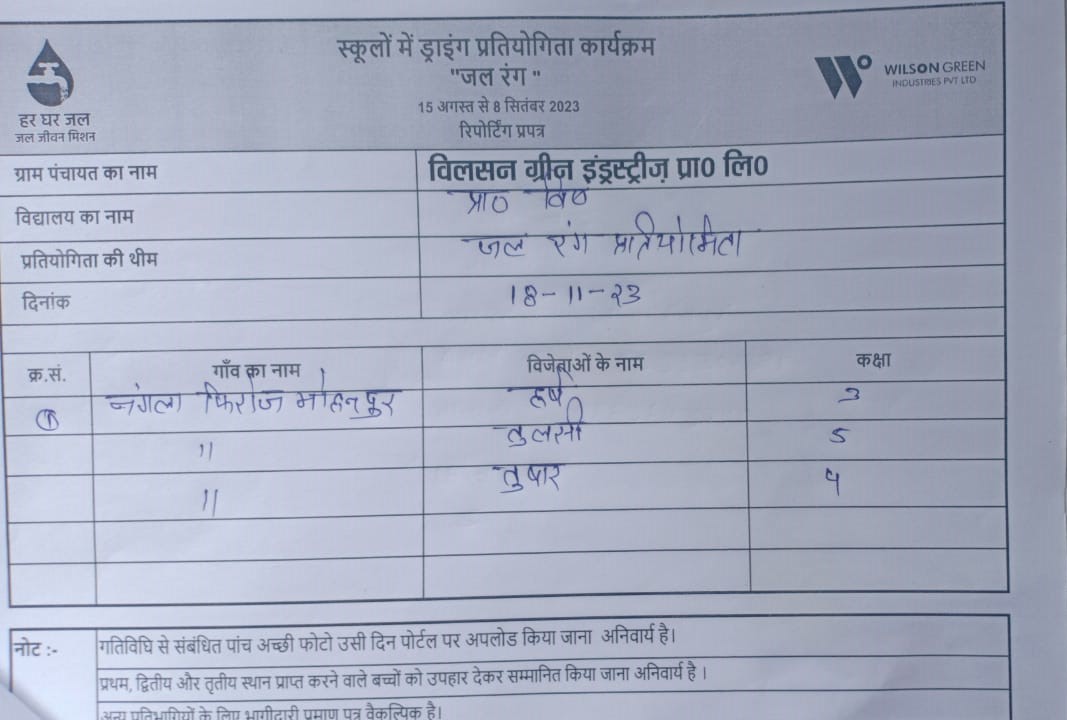 स्कूलों में ड्राइंग प्रतियोगिता कार्यक्रम
"जल रंग "
15 अगस्त से 8 सितंबर 2023
रिपोर्टिंग प्रपत्र
हर घर जल
जल जीवन मिशन
WILSON GREEN
INDUSTRIES PVT LTD
ग्राम पंचायत का नाम विलसन ग्रीन इंड्रस्ट्रीज़ प्रा0 लि0
विद्यालय का नाम प्रा० वि०
प्रतियोगिता की थीम जल रंग प्रतियोगिता
दिनांक 18-11-23
क्र.सं. गाँव का नाम विजेताओं के नाम कक्षा
① नंगला फिरोज मोहनपुर हर्ष 3
" तुलसी 5
" तुषार 4
नोट :- गतिविधि से संबंधित पांच अच्छी फोटो उसी दिन पोर्टल पर अपलोड किया जाना अनिवार्य है।
प्रथम, द्वितीय और तृतीय स्थान प्राप्त करने वाले बच्चों को उपहार देकर सम्मानित किया जाना अनिवार्य है ।
अन्य प्रतिभागियों के लिए भागीदारी प्रमाण पत्र वैकल्पिक है।